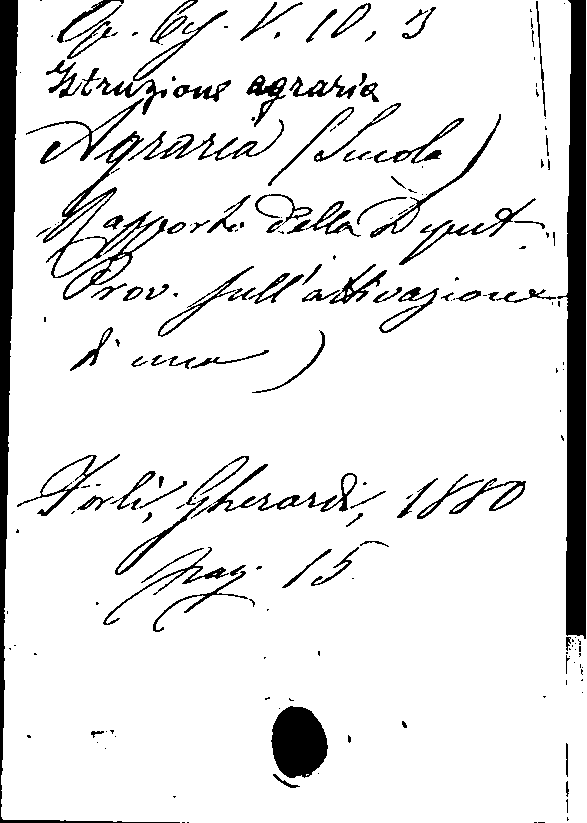 Op. Cg. V. 10, 3
Istruzione agraria
Agraria (Scuola)
Rapporto della Deput.
Prov. sull'attivazione
di una )
Forlì, Gherardi, 1880
pag. 15